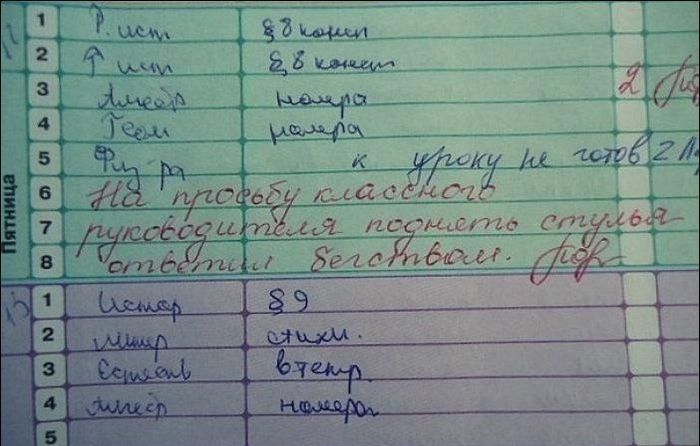 Пятница
1 Р. ист § 8 конец
2 Р ист § 8 конст
3 Алгебр номера 2
4 Геом номера
5 Физ-ра к уроку не готов 2
6 На просьбу классного
7 руководителя поднять стулья
8 ответил бегством.
1 Истор § 9
2 Литер стихи.
3 Естеств в тетр.
4 Алгебр номера
5